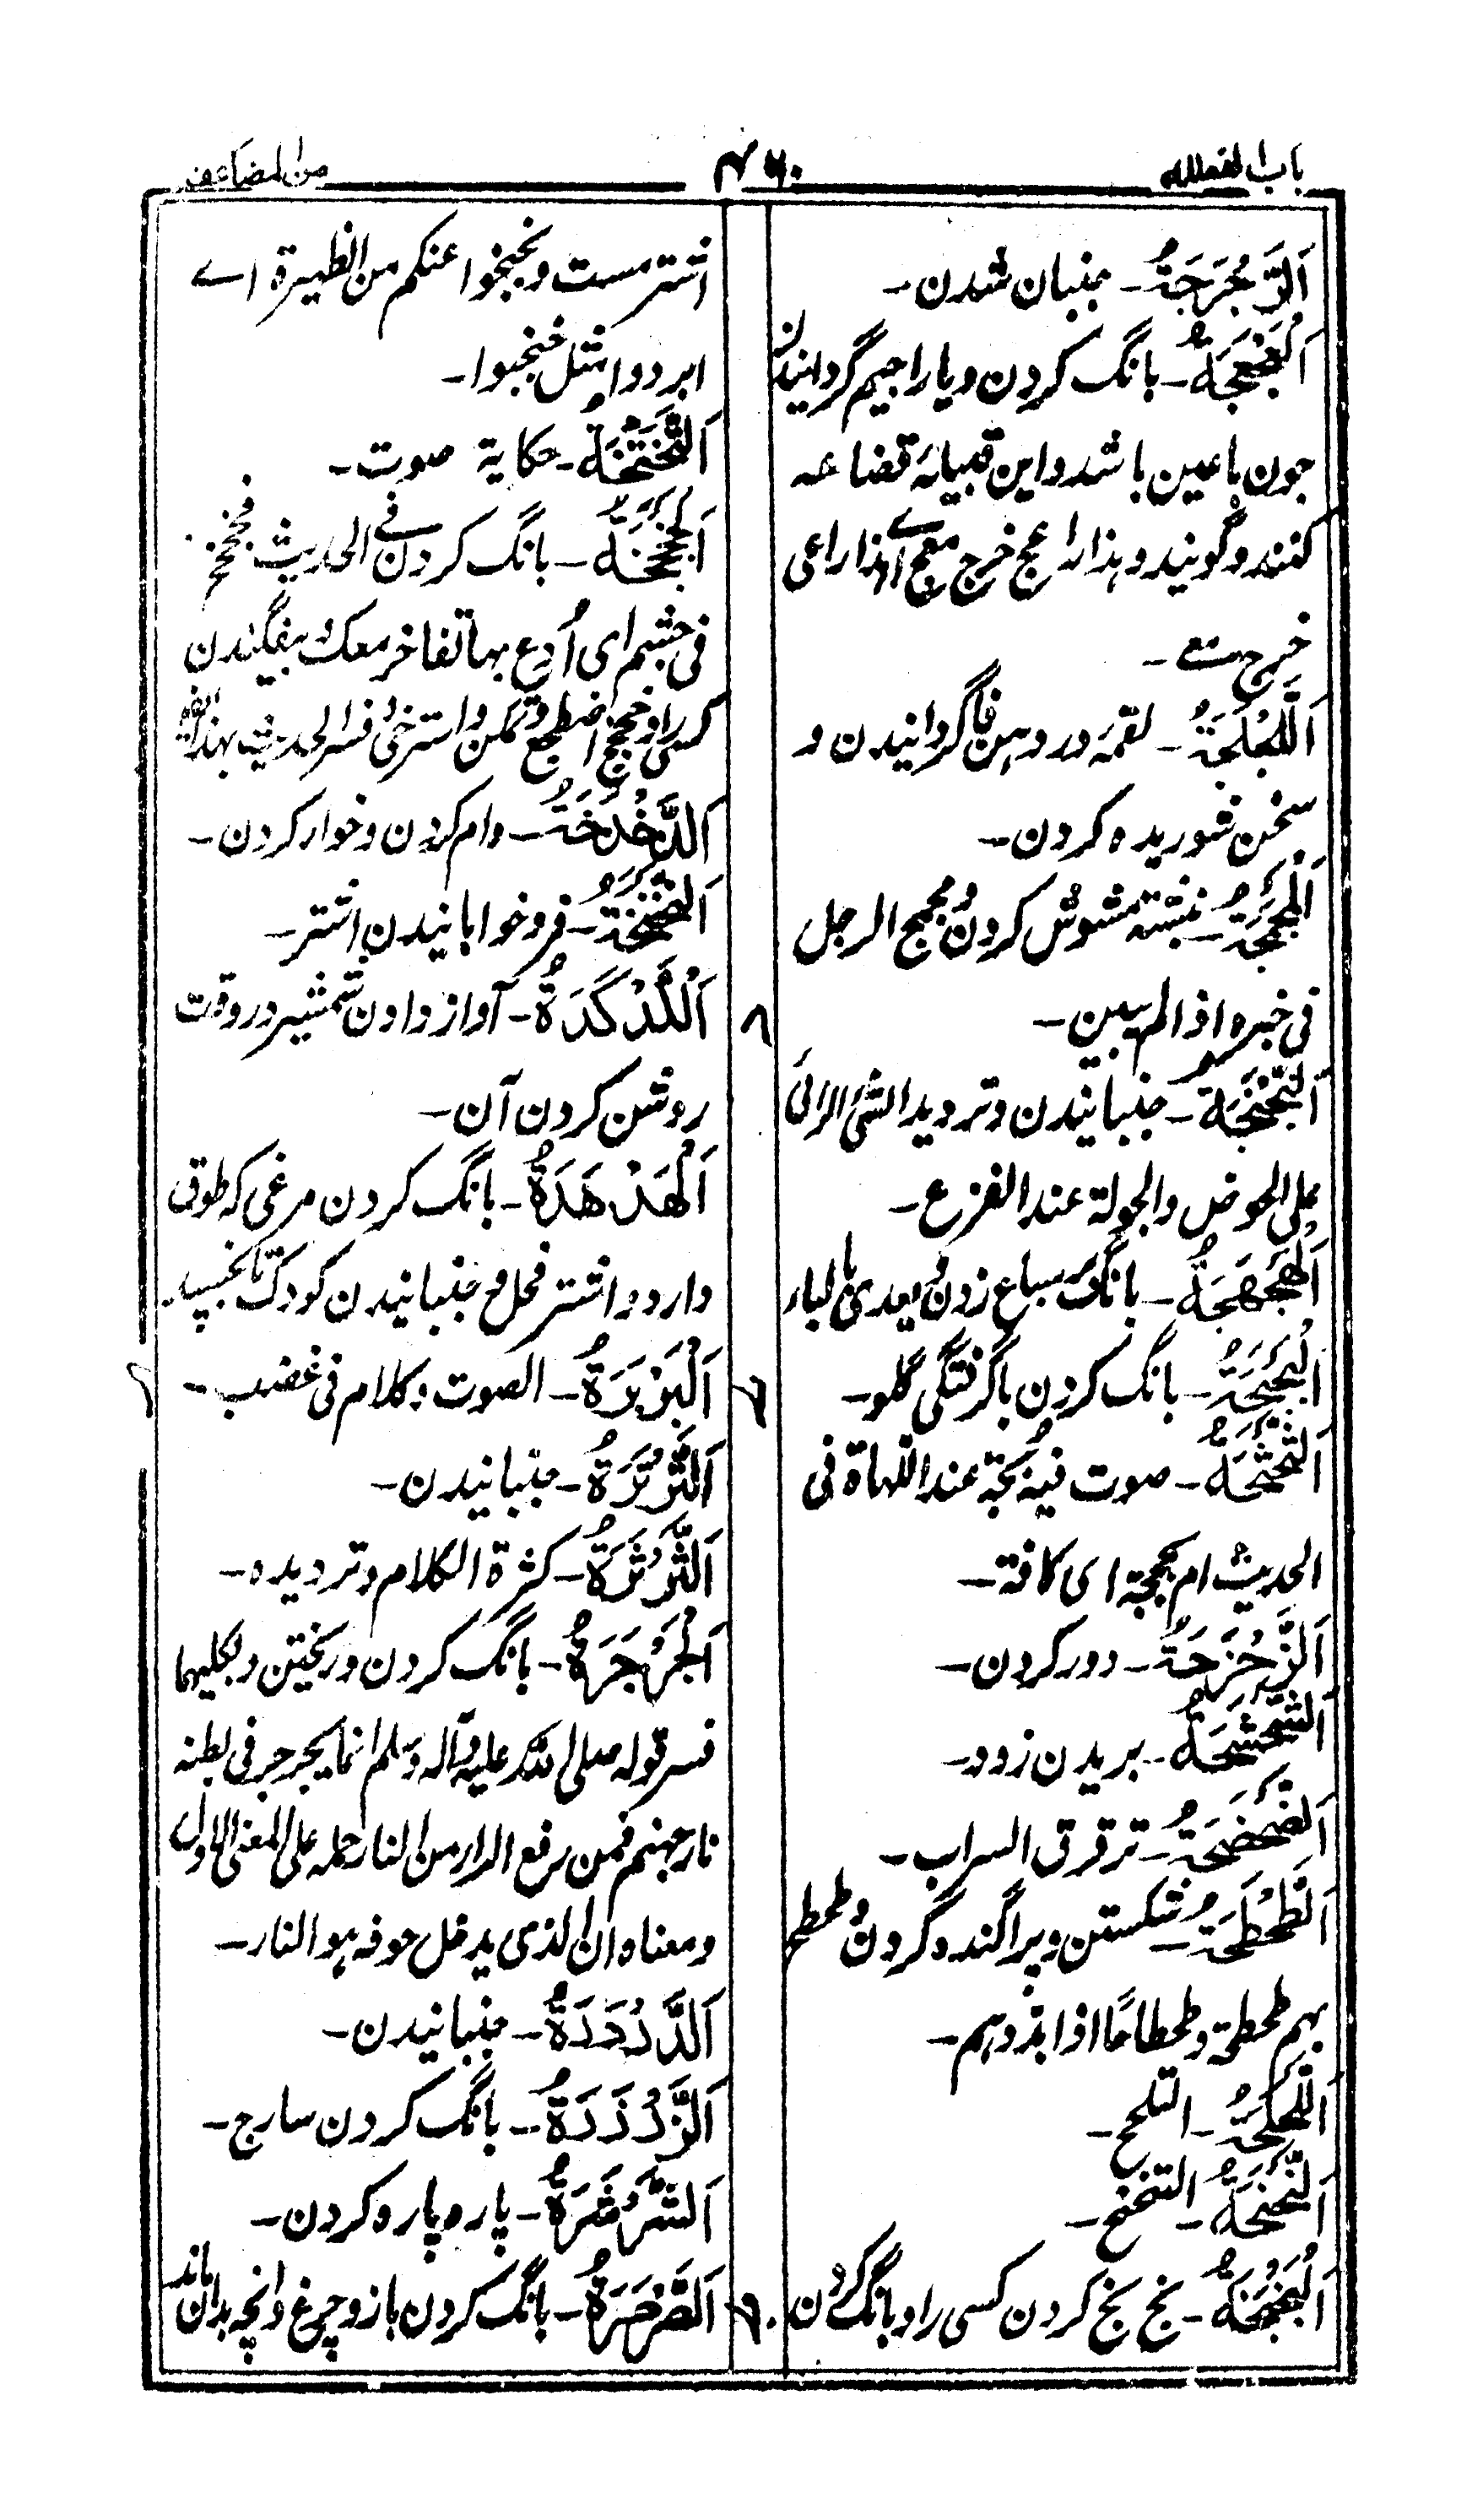 باب الفعلله
۴۶۰
من المضاعف
اَلرَّجْرَجَةُ ـ جنبان شدن ـ
اَلْعَجْعَجَةُ ـ بانگ کردن ویارا جیم گردانیدن
چون باعین باشد واین قبیلهٔ قضاعه
کنند وگویند هذا راعج خرج معج اے هذا راعی
خرج معی ـ
اَللَّجْلَجَةُ ـ لقمه در دهن فاگردانیدن و
سخن شوریده کردن ـ
اَلْمَجْمَجَةُ ـ نبشته مشوش کردن ومجمج الرجل
فی خبره اذا لم یبین ـ
اَلنَّجْنَجَةُ ـ جنبانیدن وتردید الشئ الرائ
علی الحوض والجولة عند الفزع ـ
اَلْهَجْهَجَةُ ـ بانگ بسباع زدن ویعدی بالباء
اَلْبَحْبَحَةُ ـ بانگ کردن باگرفتگی گلو ـ
اَلثَّحْثَحَةُ ـ صوت فیه بحة عند اللهاة فی
الحدیث ام بجبجة ای کافة ـ
اَلزَّحْزَحَةُ ـ دور کردن ـ
اَلشَّحْشَحَةُ ـ پریدن زود ـ
اَلضَّحْضَحَةُ ـ ترقرق السراب ـ
اَلطَّحْطَحَةُ ـ شکستن وپراگنده کردن وطحطح
بهم طحطحة وطحطاحًا اذا بددهم ـ
اَلْمَلْحَلَحَةُ ـ التلحح ـ
اَلنَّحْنَحَةُ ـ التنحنح ـ
اَلْبَخْبَخَةُ ـ بخ بخ کردن کسی را وبانگ کردن
اشتر مست وبخبخوا عنکم من الظهیرة اے
ابردوا مثل خبخبوا ـ
اَلتَّخْتَخَةُ ـ حکایة صوت ـ
اَلْجَخْجَخَةُ ـ بانگ کردن وفی الحدیث فجخجخ
فی جشم ای اُدع بها تفاخر معک بیفگندن
کسی را وجخجخ اضطجع وتمکن واسترخی وفسر الحدیث بهذا ایضا
اَلدَّخْدَخَةُ ـ رام کردن وخوار کردن ـ
اَلنَّخْنَخَةُ ـ فروخوابانیدن اشتر ـ
اَلْکَدْکَدَةُ ـ آواز دادن شمشیر در وقت
روشن کردن آن ـ
اَلْهَدْهَدَةُ ـ بانگ کردن مرغی که طوق
دارد واشتر فحل وجنبانیدن کودک تا بخسپد
اَلْبَرْبَرَةُ ـ الصوت وکلام فی غضب ـ
اَلتَّرْتَرَةُ ـ جنبانیدن ـ
اَلثَّرْثَرَةُ ـ کثرة الکلام وتردیده ـ
اَلْجَرْجَرَةُ ـ بانگ کردن وریختن وبکلیهما
فسر قوله صلی الله علیه وآله وسلم انما یجرجر فی بطنه
نار جهنم فمن رفع الراء من النار حمله علی المعنی الاول
ومعناه ان الذی یدخل جوفه هو النار ـ
اَلدَّرْدَرَةُ ـ جنبانیدن ـ
اَلزَّرْزَرَةُ ـ بانگ کردن سارج ـ
اَلشَّرْشَرَةُ ـ پاره پاره کردن ـ
اَلصَّرْصَرَةُ ـ بانگ کردن باز وچرغ وانچه بدان ماند